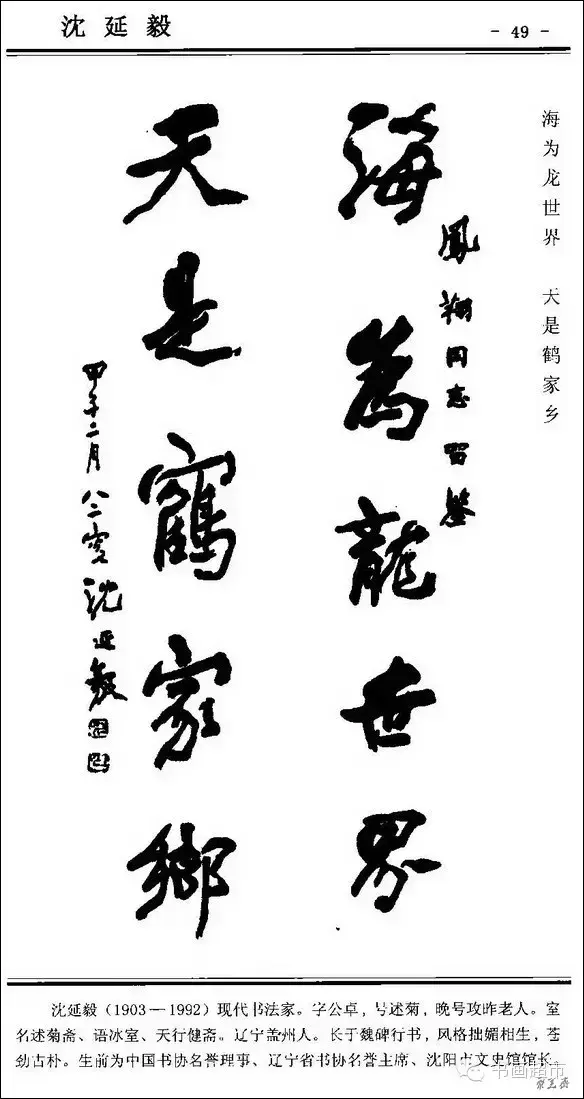 沈延毅
- 49 -
海为龙世界 天是鹤家乡
海為龍世界
鳳翔同志留鑒
天是鶴家鄉
甲子二月八二叟沈延毅
沈延毅(1903—1992)现代书法家。字公卓,号述菊,晚号攻昨老人。室
名述菊斋、语冰室、天行健斋。辽宁盖州人。长于魏碑行书,风格拙媚相生,苍
劲古朴。生前为中国书协名誉理事、辽宁省书协名誉主席、沈阳市文史馆馆长。
书画超市